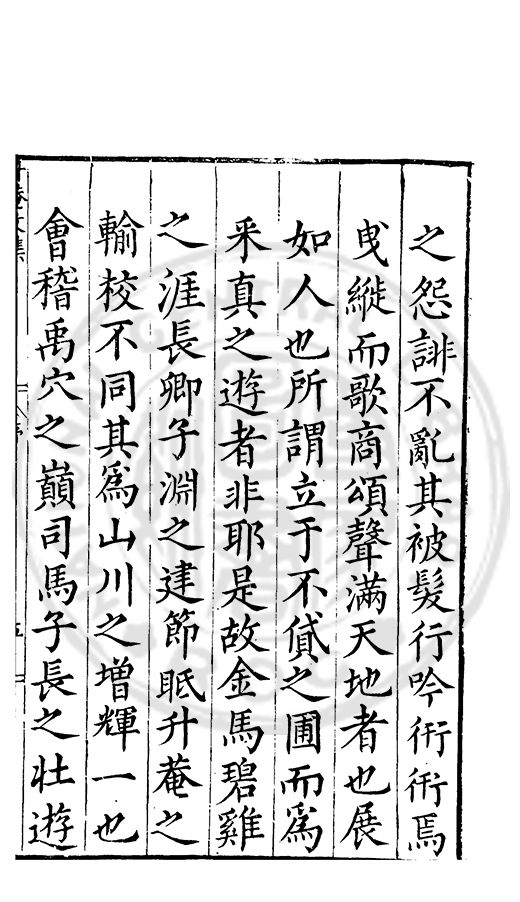 之怨誹不亂其被髮行吟衎衎焉
曵縰而歌商頌聲滿天地者也展
如人也所謂立于不貸之圃而爲
采真之遊者非耶是故金馬碧雞
之涯長卿子淵之建節眂升菴之
輸校不同其爲山川之增輝一也
會稽禹穴之巔司馬子長之壯遊